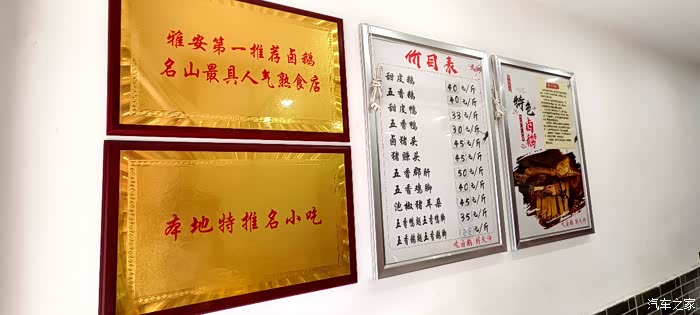 雅安第一推荐卤鹅
名山最具人气熟食店
本地特推名小吃
价目表
甜皮鹅 40元/斤
五香鹅 40元/斤
甜皮鸭 33元/斤
五香鸭 30元/斤
卤猪头 45元/斤
猪臁头 45元/斤
五香郡肝 50元/斤
五香鸡脚 40元/斤
泡椒猪耳朵 45元/斤
五香鸭翅五香鸭脚 35元/斤
五香鹅翅五香鹅脚 元/斤
吃卤鹅
特色卤鹅
吃卤鹅
汽车之家